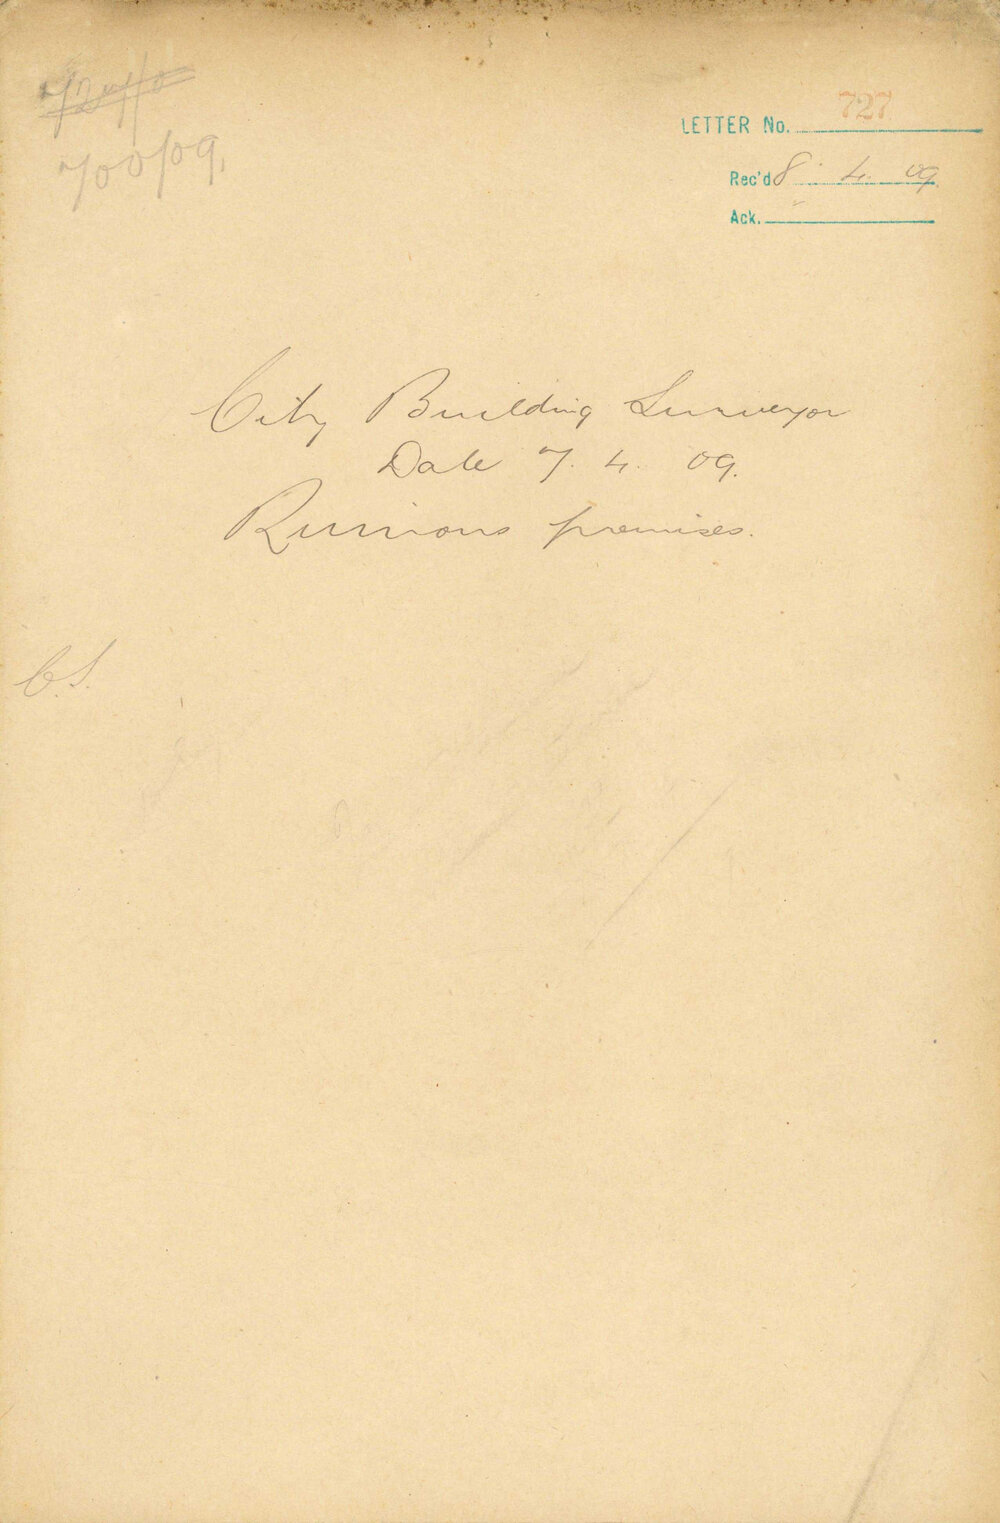 700/09.
LETTER No. 727
Rec'd 8. 4. 09.
Ack.
City Building Surveyor
Date 7. 4. 09.
Ruinous premises.
C.S.